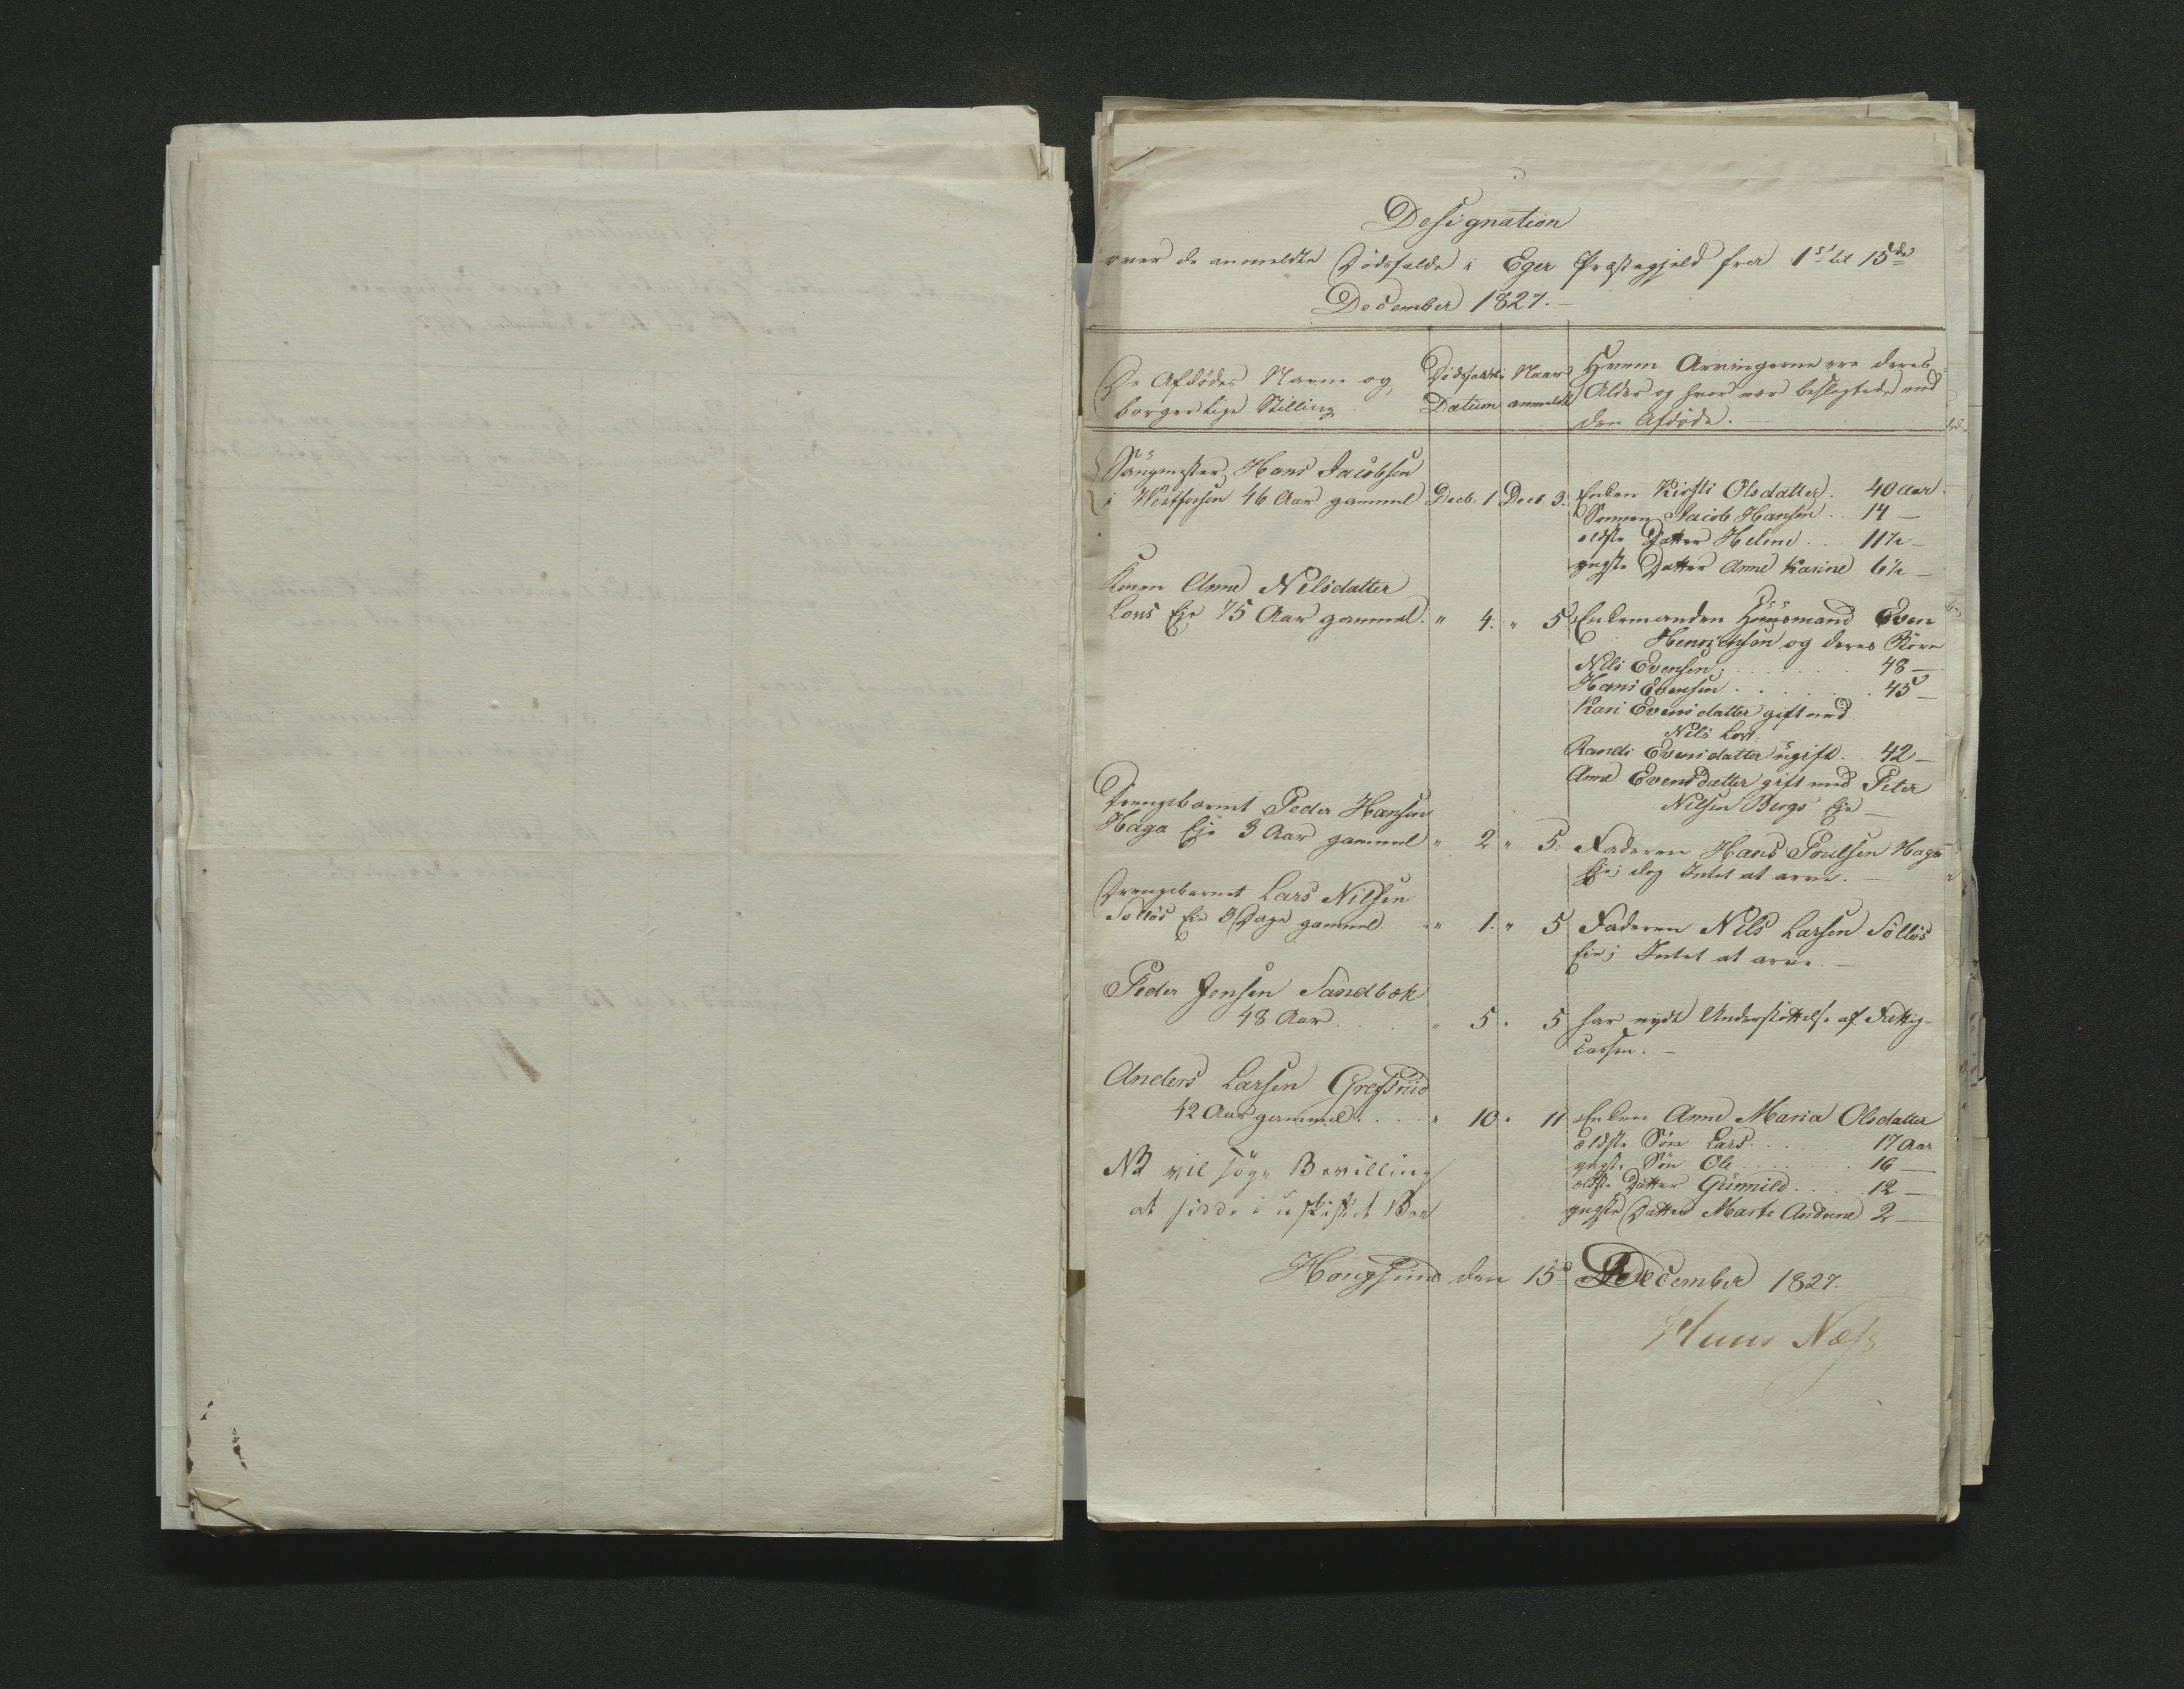 Designation
over de anmeldte Dødsfalde i Eger Præstegjeld fra 1ste til 15de
December 1827.
De Afdødes Navne og
borgerlige Stilling
Dødsfaldets
Datum
Naar
anmeldt
Hvem Arvingerne ere deres
Alder og hvor nær beslegtede med
den Afdøde.
Saugmester Hans Jacobsen
i Westfossen 46 Aar gammel Decb. 1 Decb 3. Enken Kirsti Olsdatter. 40 Aar
Sønnen Jacob Hansen .. 14 —
eldste Datter Helene ... 11½ —
yngste Datter Anne Karine 6½ —
Konen Anne Nilsdatter
Lovs Eje 75 Aar gammel. " 4. " 5 Enkemanden Huusmand Even
Henrichsen og deres Børn
Nils Evensen ....... 48 —
Hans Evensen ....... 45 —
Kari Evensdatter gift med
Nils Lovs.
Randi Evensdatter ugift .. 42 —
Anne Evensdatter gift med Peter
Nilsen Bergs Eje —
Drengebarnet Peder Hansen
Haga Eje 3 Aar gammel " 2 " 5. Faderen Hans Poulsen Haga
Eje; dog Intet at arve. —
Drengebarnet Lars Nilsen
Solløs Eie 3 Dage gammel " 1. " 5 Faderen Nils Larsen Solløs
Eie; Intet at arve. —
Peder Jensen Sandbæk
48 Aar .... " 5 " 5 har nydt Understøttelse af Fattig-
cassen. —
Anders Larsen
42 Aar gammel .... " 10 " 11 Enken Anne Maria Olsdatter
eldste Søn Lars ... 17 Aar
yngste Søn Ole ....... 16 —
eldste Datter Gunnild .... 12 —
yngste Datter Marte Andrene 2 —
NB vil søge Bevilling
at sidde i uskiftet Boe
Hougsund den 15d December 1827.
Huus Næss